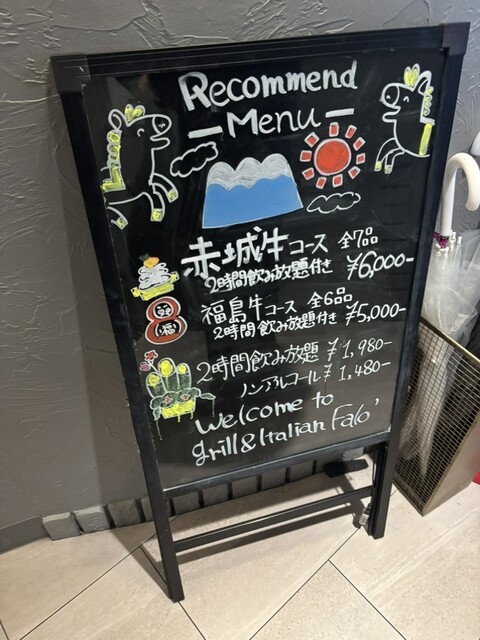 Recommend
—Menu—
赤城牛コース 全7品
2時間飲み放題付き ¥6,000-
福島牛コース 全6品
2時間飲み放題付き ¥5,000-
2時間飲み放題 ¥1,980-
ノンアルコール ¥1,480-
Welcome to
grill&Italian Falo'